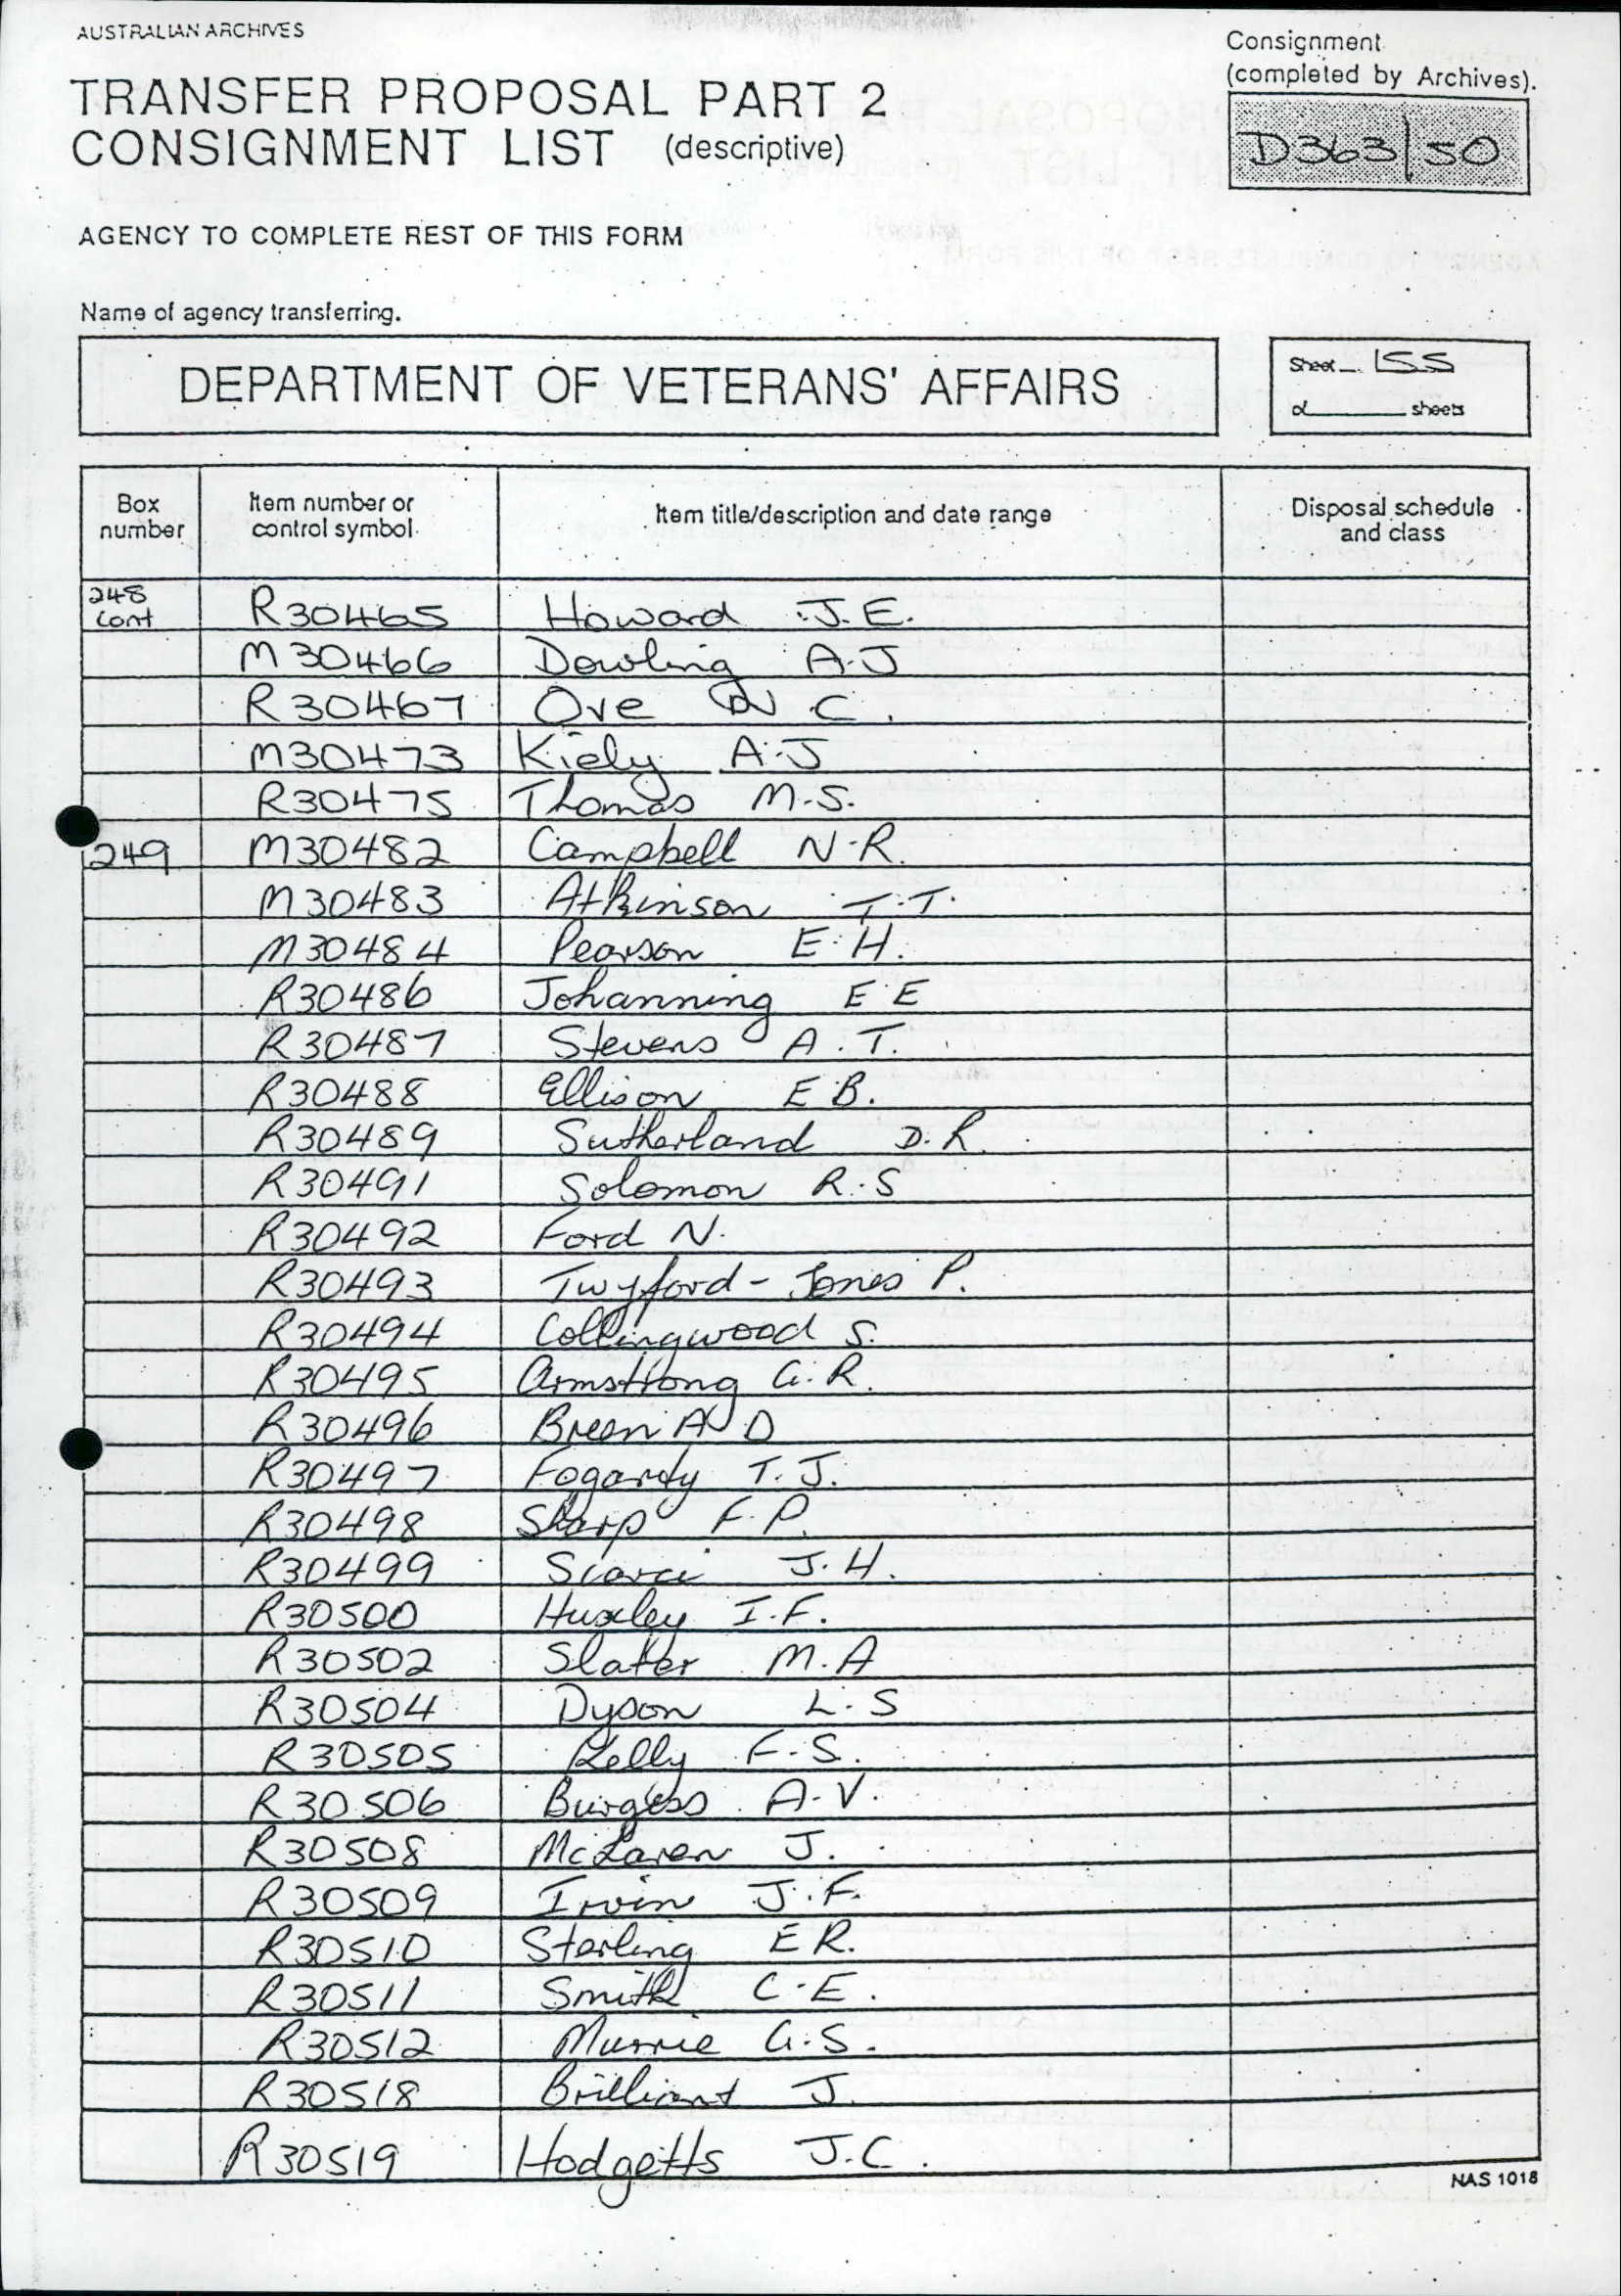 AUSTRALIAN ARCHIVES
TRANSFER PROPOSAL PART 2
CONSIGNMENT LIST (descriptive)
Consignment
(completed by Archives).
D363/50
AGENCY TO COMPLETE REST OF THIS FORM
Name of agency transferring.
DEPARTMENT OF VETERANS' AFFAIRS
Sheet 155
of sheets
Box number Item number or control symbol Item title/description and date range Disposal schedule and class
248 Cont R30465 Howard J.E.
M30466 Dowling A.J
R30467 Ove W C.
M30473 Kiely A.J
R30475 Thomas M.S.
249 M30482 Campbell N.R.
M30483 Atkinson T.T.
M30484 Pearson E.H.
R30486 Johanning E E
R30487 Stevens A.T.
R30488 Ellison E B.
R30489 Sutherland D.R.
R30491 Solomon R.S
R30492 Ford N.
R30493 Twyford-Jones P.
R30494 Collingwood S.
R30495 Armstrong G.R.
R30496 Breen A D
R30497 Fogardy T.J.
R30498 Sharp F.P.
R30499 J.H.
R30500 Huxley I.F.
R30502 Slater M.A
R30504 Dyson L.S
R30505 Kelly F.S.
R30506 Burgess A.V.
R30508 McLaren J.
R30509 Irvin J.F.
R30510 Sterling E R.
R30511 Smith C.E.
R30512 Murrie G.S.
R30518 Brilliant J.
R30519 Hodgetts J.C.
NAS 1018